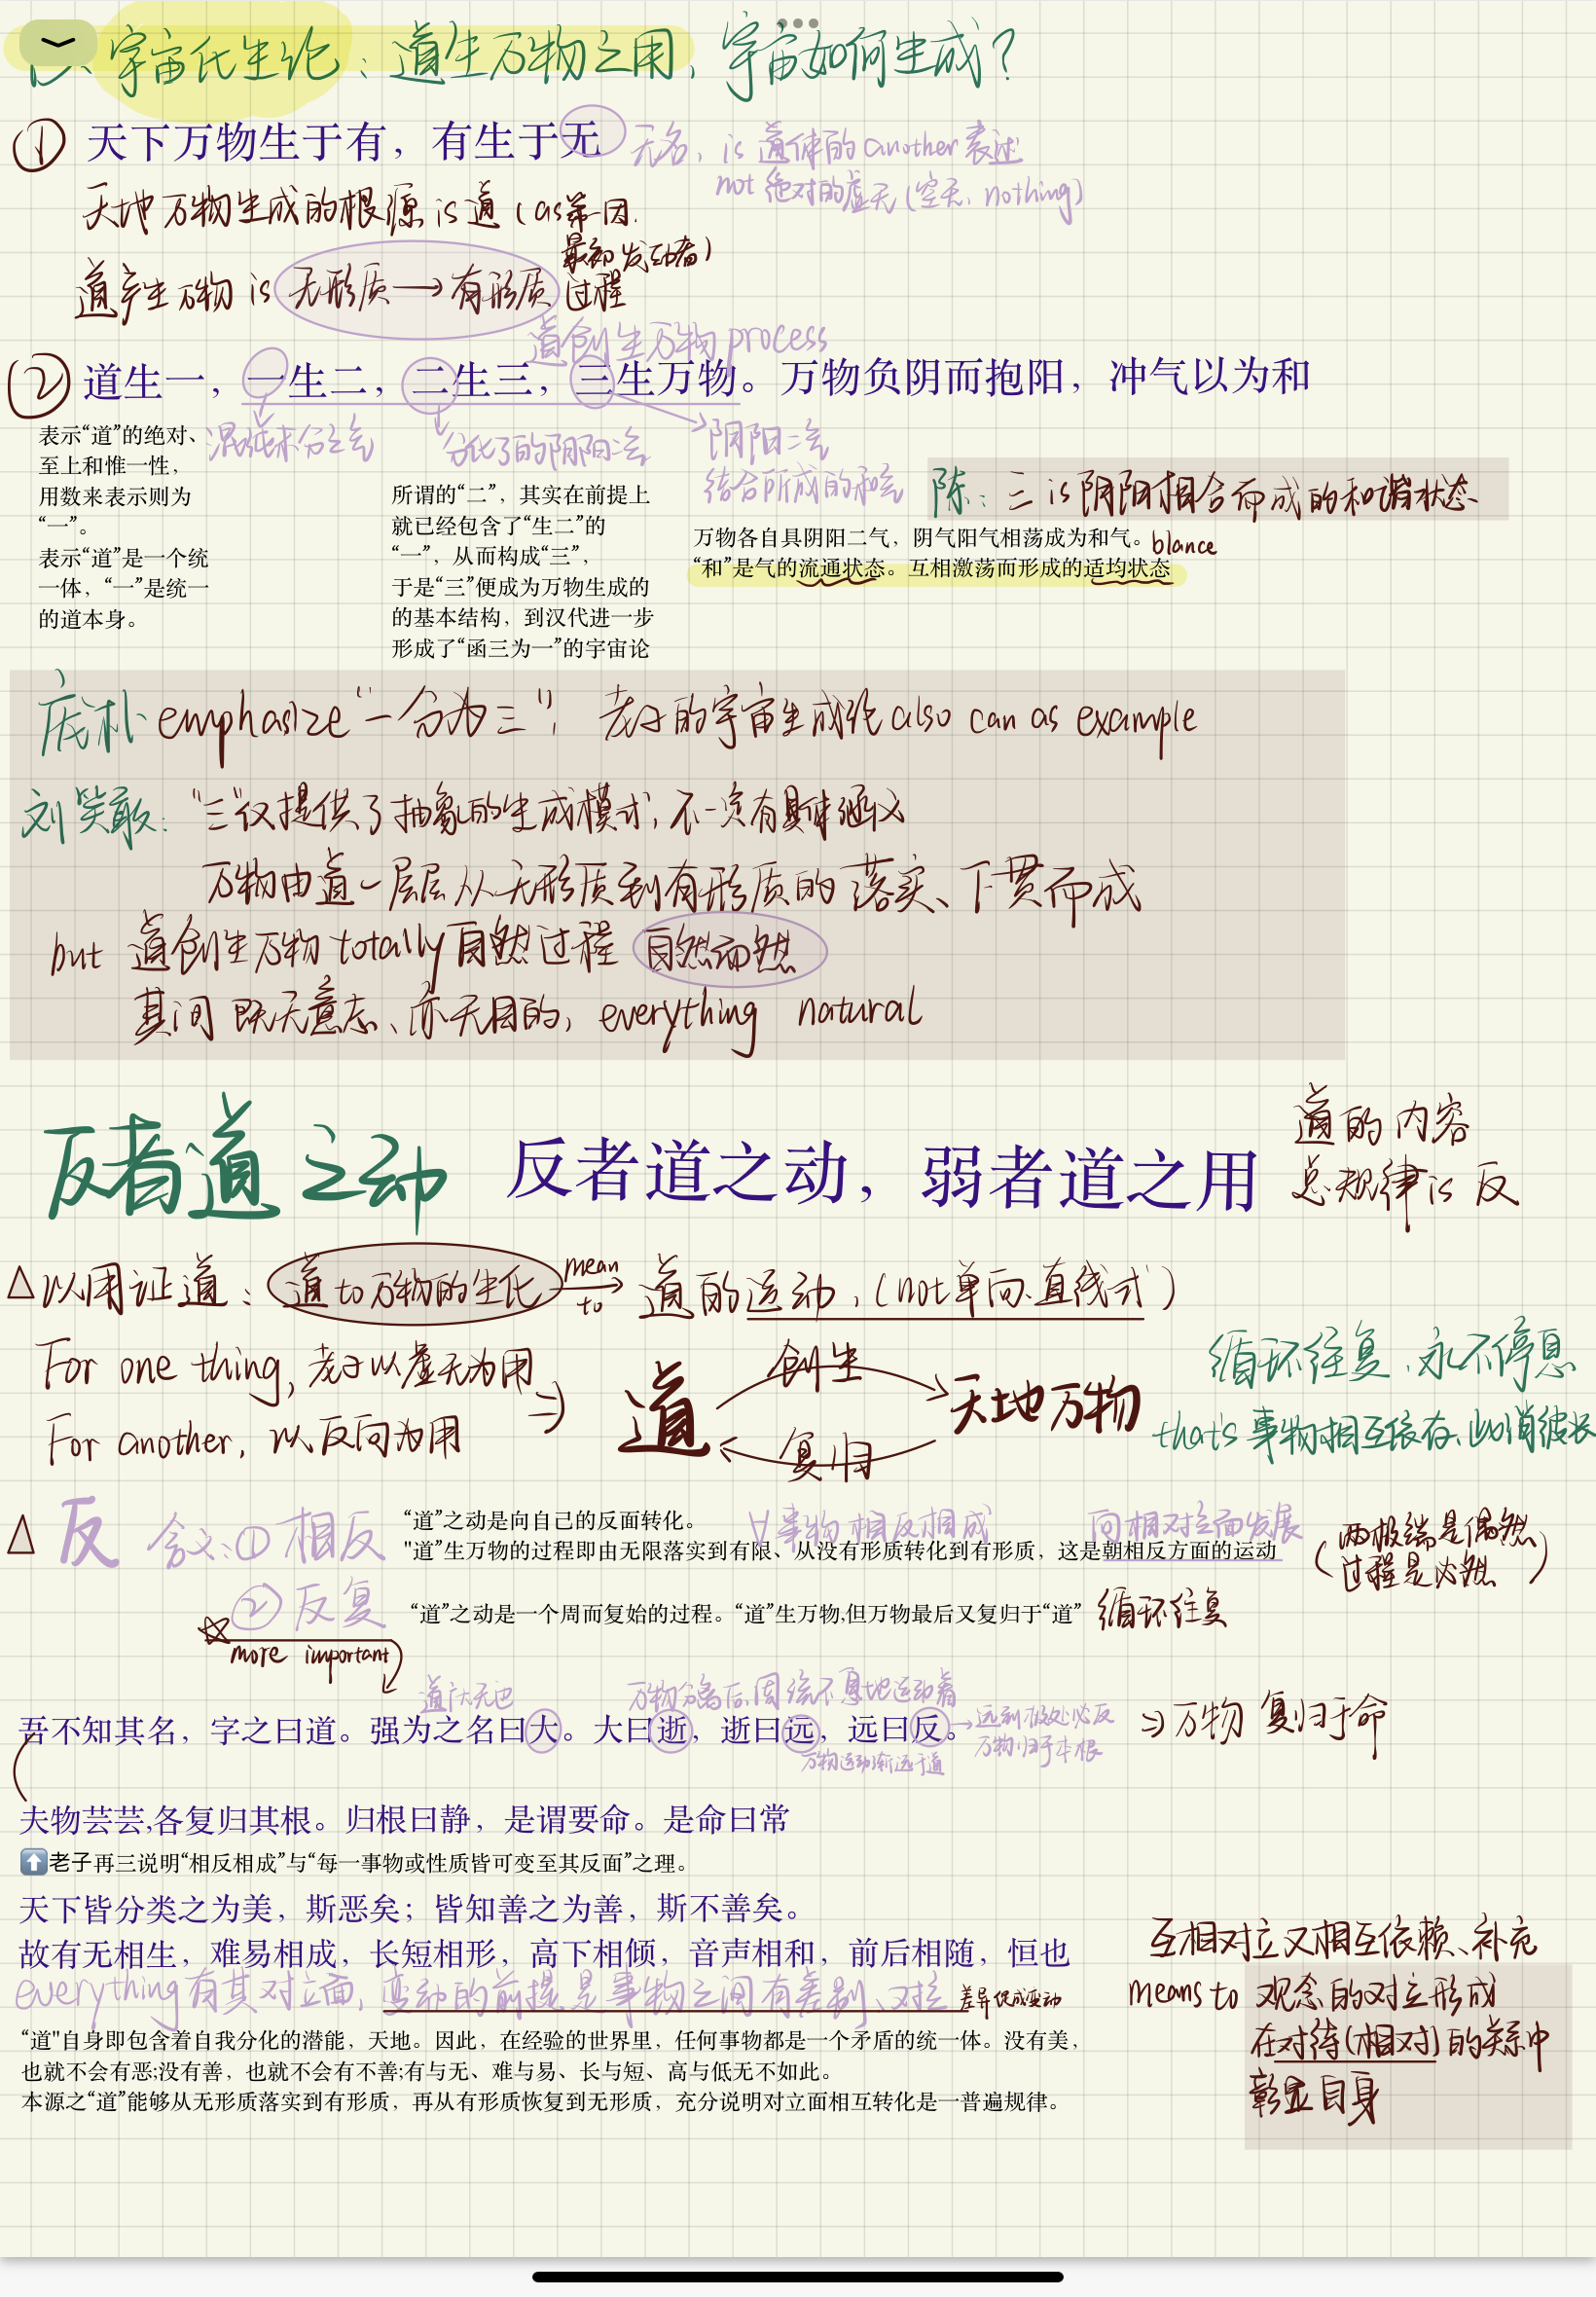 宇宙化生论：道生万物之用、宇宙如何生成？
① 天下万物生于有，有生于无
无名，is 道体的 another 表述
not 绝对的虚无（空无、nothing）
天地万物生成的根源 is 道（as 第一因.
最初发动者）
道产生万物 is 无形质→有形质 过程
道创生万物 process
② 道生一，一生二，二生三，三生万物。万物负阴而抱阳，冲气以为和
混沌未分之气
分化了的阴阳二气
阴阳二气
结合所成的和气
陈：三 is 阴阳相合而成的和谐状态
表示“道”的绝对、
至上和惟一性，
用数来表示则为
“一”。
表示“道”是一个统
一体，“一”是统一
的道本身。
所谓的“二”，其实在前提上
就已经包含了“生二”的
“一”，从而构成“三”，
于是“三”便成为万物生成的
的基本结构，到汉代进一步
形成了“函三为一”的宇宙论
万物各自具阴阳二气，阴气阳气相荡成为和气。
blance
“和”是气的流通状态。互相激荡而形成的适均状态
庞朴 emphasize“一分为三”；老子的宇宙生成论 also can as example
刘笑敢：“三”仅提供了抽象的生成模式，不一定有具体涵义
万物由道一层层从无形质到有形质的落实、下贯而成
but 道创生万物 totally 自然过程 自然而然
其间 既无意志、亦无目的，everything natural
反者道之动
反者道之动，弱者道之用
道的内容
总规律 is 反
△以用证道：道 to 万物的生化 mean to→ 道的运动，（not 单向、直线式）
For one thing, 老子以虚无为用
For another, 以反向为用
⇒ 道 创生 天地万物
复归
循环往复、永不停息
that's 事物相互依存、此消彼长
△ 反 含义：① 相反
“道”之动是向自己的反面转化。
∀事物相反相成
向相对立面发展
"道”生万物的过程即由无限落实到有限、从没有形质转化到有形质，这是朝相反方面的运动
（两极端是偶然
过程是必然）
② 反复
“道”之动是一个周而复始的过程。“道”生万物,但万物最后又复归于“道”
循环往复
☆ more important
万物分离后，周流不息地运动着
吾不知其名，字之曰道。强为之名曰大。大曰逝，逝曰远，远曰反。
→远到极处必反
万物归于本根
万物运动渐远于道
⇒万物 复归于命
夫物芸芸,各复归其根。归根曰静，是谓要命。是命曰常
⬆️老子再三说明“相反相成”与“每一事物或性质皆可变至其反面”之理。
天下皆分类之为美，斯恶矣；皆知善之为善，斯不善矣。
故有无相生，难易相成，长短相形，高下相倾，音声相和，前后相随，恒也
everything 有其对立面，变动的前提是事物之间有差别、对立
差异促成变动
“道"自身即包含着自我分化的潜能，天地。因此，在经验的世界里，任何事物都是一个矛盾的统一体。没有美，
也就不会有恶;没有善，也就不会有不善;有与无、难与易、长与短、高与低无不如此。
本源之“道”能够从无形质落实到有形质，再从有形质恢复到无形质，充分说明对立面相互转化是一普遍规律。
互相对立又相互依赖、补充
means to 观念的对立形成
在对待（相对）的关系中
彰显自身